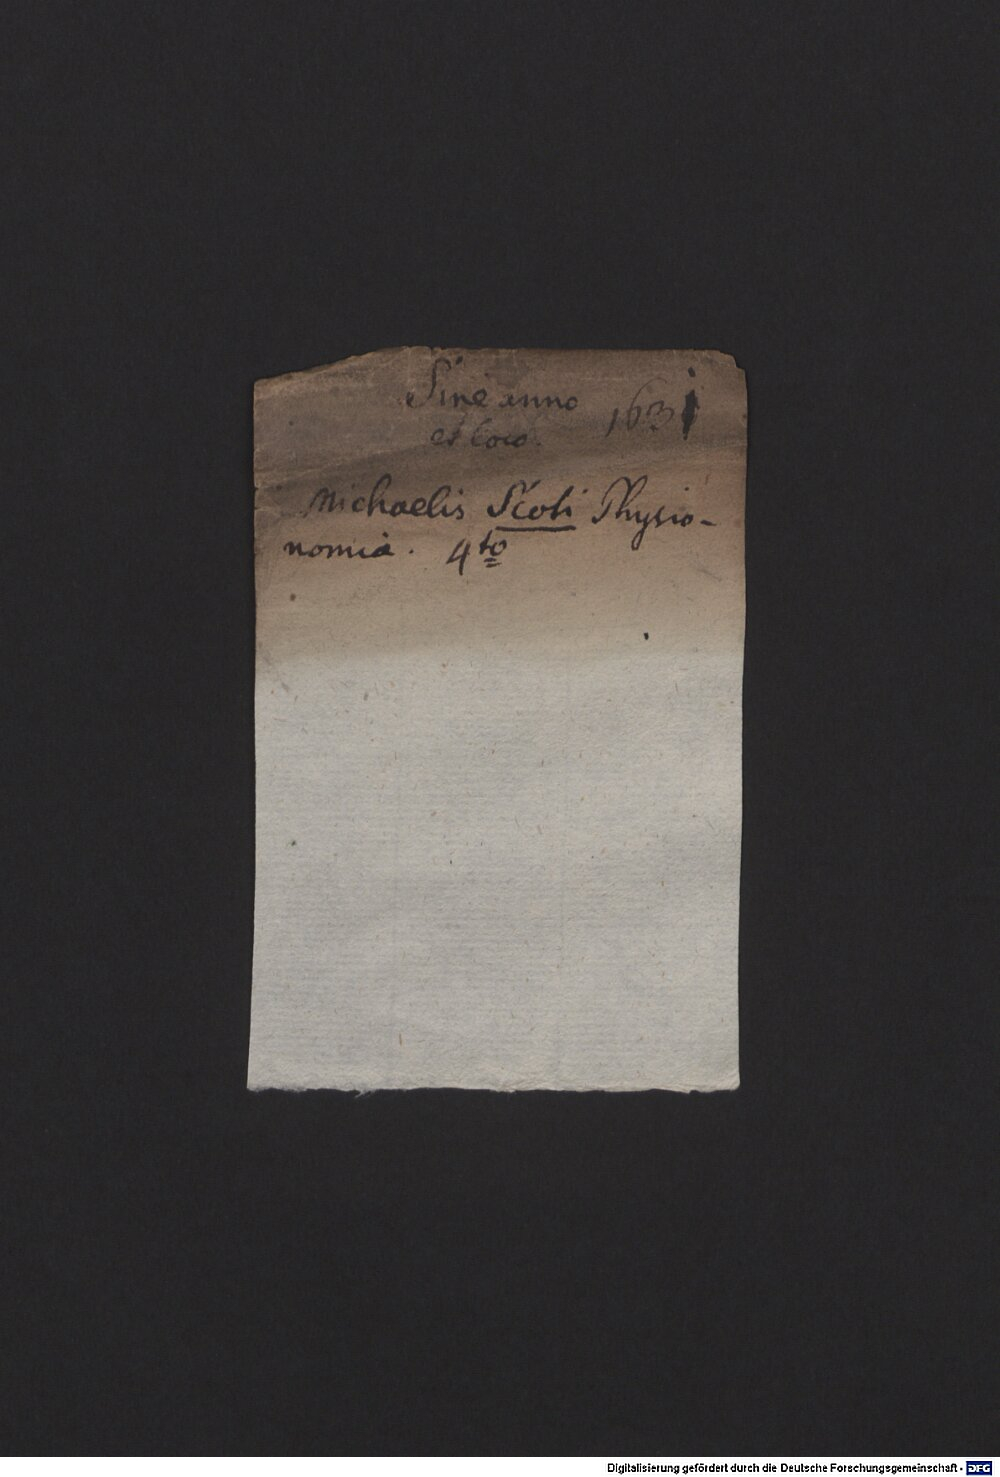 Sine anno
et loco. 1631
Michaelis Scoti Physio-
nomia. 4to
Digitalisierung gefördert durch die Deutsche Forschungsgemeinschaft - DFG